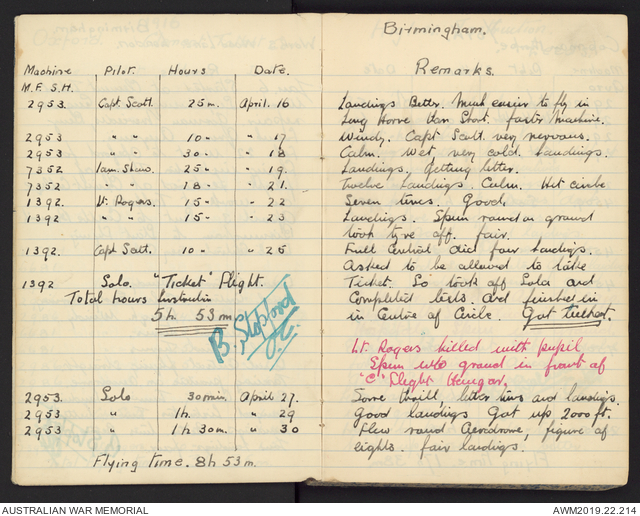 Machine Pilot. Hours Date.
M.F. S.H.
2953. Capt. Scott. 25m. April. 16
2953 " " 10" " 17
2953 " " 30" " 18
7352 25" " 19.
7352 " 18" " 21.
1392 Lt. Rogers. 15" " 22
1392 " 15" " 23
1392. Capt Scott. 10" " 26
1392 Solo. "Ticket" Flight.
Total hours Instruction
5h 53m
2953. Solo 30min. April 27.
2953 " 1h. " 29
2953 " 1h 30m. " 30
Flying Time. 8h 53m.
Birmingham.
Remarks.
Landings Better. Much easier to fly in
Long Horne than Short. faster Machine.
Windy. Capt Scott. very nervous.
Calm. Wet, very cold. Landings.
Landings. Getting better.
Twelve Landings. Calm. Hit circle
Seven times. Good.
Landings. Spun round on ground
took tyre off. fair.
Full Control. did four landings.
Asked to be allowed to take
Ticket. So took off Solo and
Completed tests. And finished in
in Centre of Circle. Got ticket.
Lt. Rogers killed with pupil
Spun into ground in front of
"C" Flight Hangar.
Some thrill, better turns and landings.
Good landings Got up 2000 ft.
Flew round Aerodrome, figure of
eights. fair landings.
AUSTRALIAN WAR MEMORIAL AWM2019.22.214